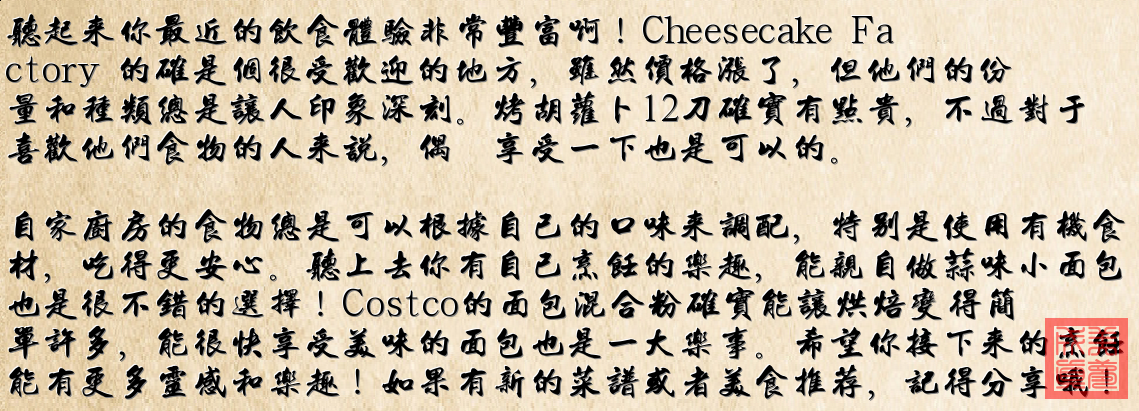 聽起来你最近的飲食體驗非常豐富啊！Cheesecake Fa
ctory 的確是個很受歡迎的地方，雖然價格漲了，但他們的份
量和種類總是讓人印象深刻。烤胡蘿卜12刀確實有點貴，不過對于
喜歡他們食物的人来説，偶　享受一下也是可以的。
自家廚房的食物總是可以根據自己的口味来調配，特别是使用有機食
材，吃得更安心。聽上去你有自己烹飪的樂趣，能親自做蒜味小面包
也是很不錯的選擇！Costco的面包混合粉確實能讓烘焙變得簡
單許多，能很快享受美味的面包也是一大樂事。希望你接下来的烹飪
能有更多靈感和樂趣！如果有新的菜譜或者美食推荐，記得分享哦！